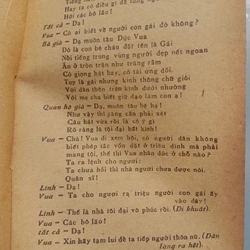 Hay là có điều gì để tâng
Hỡi các bô lão!
Tất cả — Dạ!
Vua — Có ai biết về người con gái đó không?
Bô già — Dạ, muôn tâu Đức Vua
Đó là con bé cháu đặt tên là Gái
Nổi tiếng trong vùng người đẹp nết ngoan
Ăn ở tròn trên như trăng rằm
Có giọng hát hay, có tài ứng đối.
Tuy là gái nhưng kinh thông chữ giỏi
Với dân làng ăn ở kính trên nhường dưới
Với mẹ cha biết giữ đạo làm con ạ!
Quan hộ giá — Dạ, muôn tâu bệ hạ!
Như vậy thì càng cần phải xét
Câu hát vừa rồi là có ý gì
Rõ ràng là tội đại bất kính!
Vua — Chà! Vua đi xem hội, có người dân không
biết phép tắc vốn đặt ở triều đình mà phải
mang tội, thế thì Vua nhân đức ở chỗ nào?
Ta ra lệnh cho người:
Ta chưa hỏi thì nhà ngươi chưa được nói.
Quân sĩ!
Lính — Dạ!
Vua — Ta cho người ra triệu người con gái ấy
vào đây!
Lính — Thế là nhà tôi đại vô phúc rồi. (Đi khuất).
Vua — Các bô lão!
Tất cả — Dạ!
Vua — Xin hãy tạm lui để ta tiếp người thôn nữ. (Dân
làng ra hết)